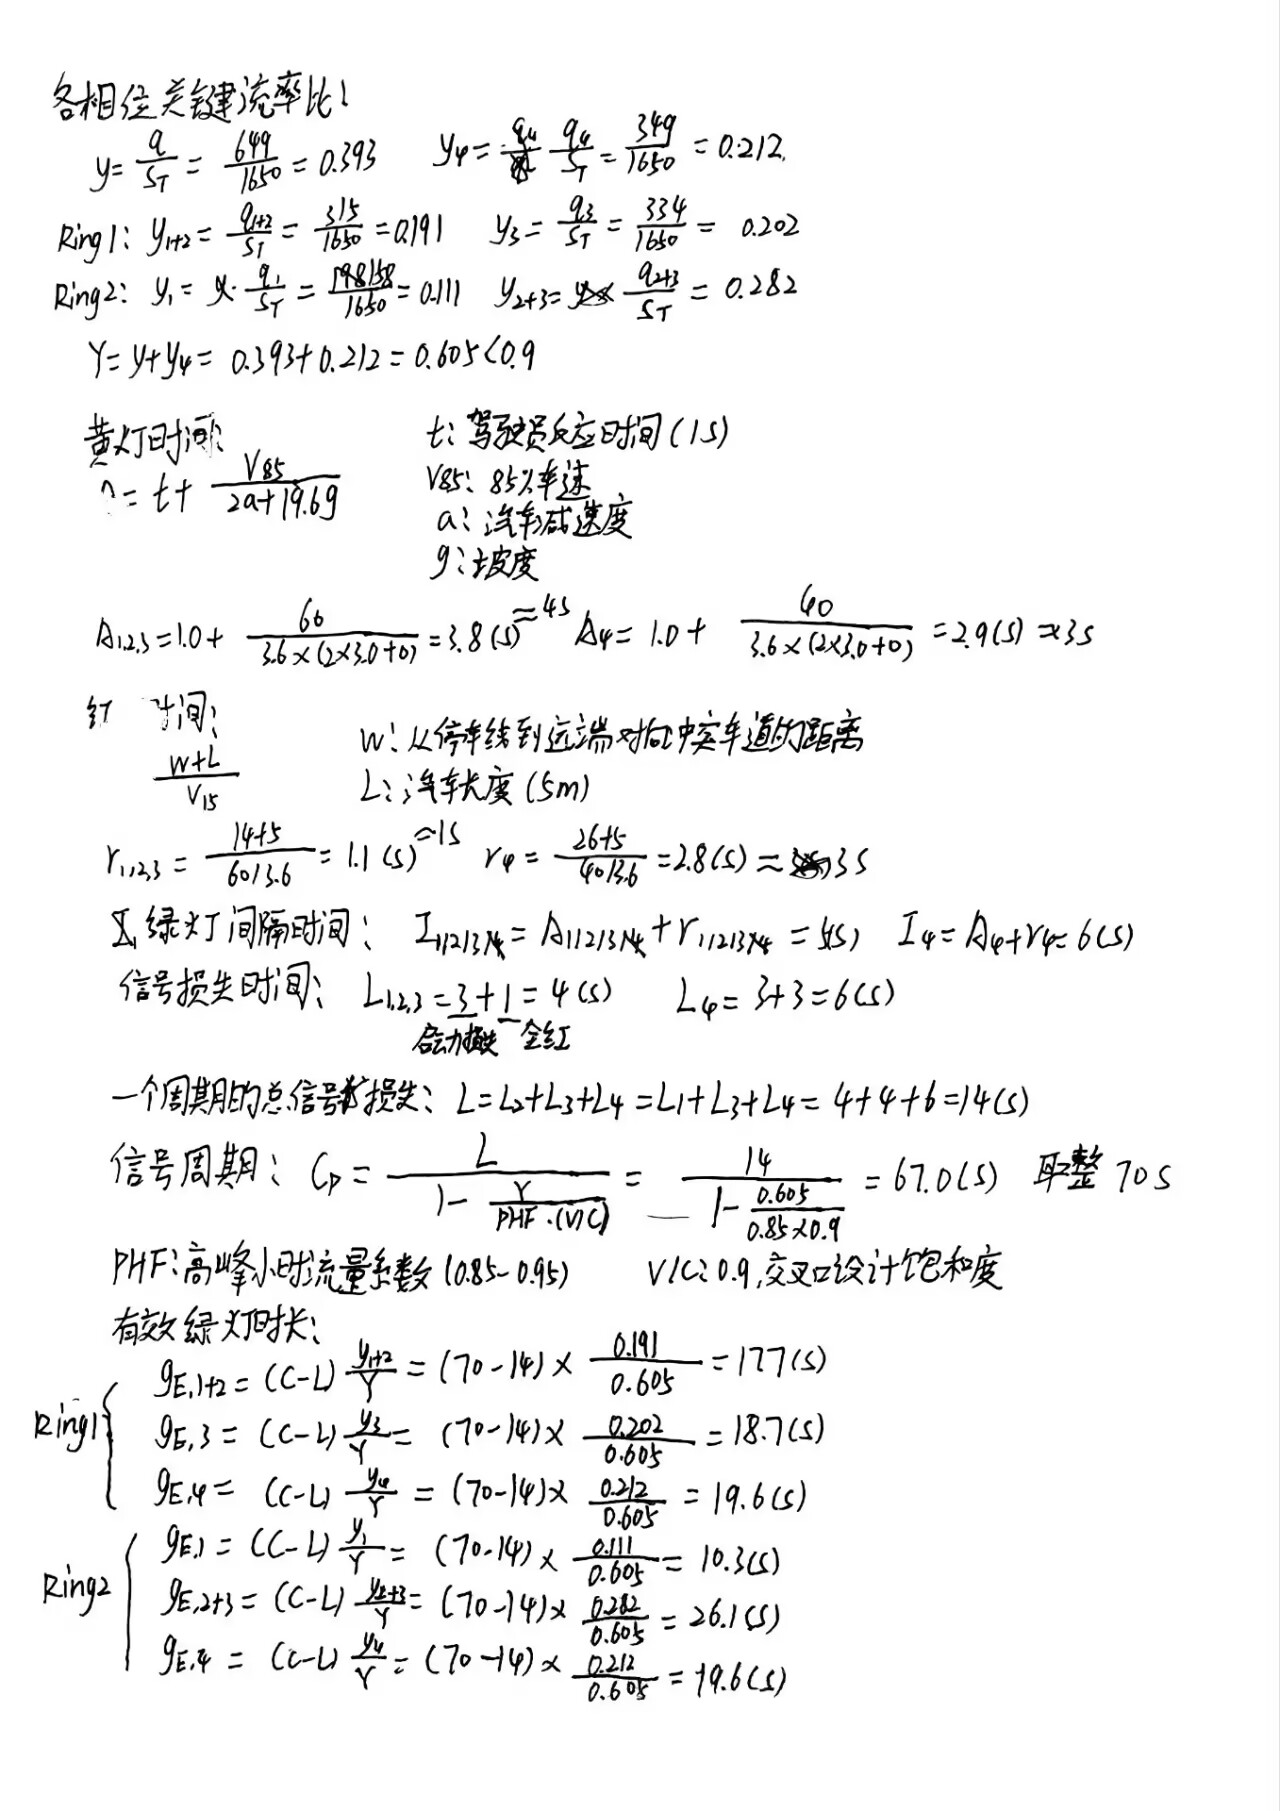 各相位关键流率比:
y = q/S_T = 649/1650 = 0.393    y4 = q4/S_T = 349/1650 = 0.212
Ring1: y1+2 = q1+2/S_T = 315/1650 = 0.191    y3 = q3/S_T = 334/1650 = 0.202
Ring2: y1 = q1/S_T = /1650 = 0.111    y2+3 = q2+3/S_T = 0.282
Y = y+y4 = 0.393+0.212 = 0.605<0.9
黄灯时间:    t: 驾驶员反应时间(1s)
= t + V85/(2a+19.6g)    V85: 85%车速
a: 汽车减速度
g: 坡度
A1,2,3 = 1.0 + 60/(3.6×(2×3.0+0)) = 3.8(s) ≈4s    A4 = 1.0 + 40/(3.6×(2×3.0+0)) = 2.9(s) ≈3s
红 时间:    W: 从停车线到远端对向冲突车道的距离
(W+L)/V15    L: 汽车长度(5m)
r1,2,3 = (14+5)/(60/3.6) = 1.1(s) ≈1s    r4 = (26+5)/(40/3.6) = 2.8(s) ≈ 3s
绿灯间隔时间: I1,2,3 = A1,2,3 + r1,2,3 = 5(s)    I4 = A4+r4 = 6(s)
信号损失时间: L1,2,3 = 3+1 = 4(s)    L4 = 3+3 = 6(s)
启动损失 全红
一个周期的总信号损失: L = L2+L3+L4 = L1+L3+L4 = 4+4+6 = 14(s)
信号周期: Cp = L/(1 - Y/(PHF·(V/C))) = 14/(1 - 0.605/(0.85×0.9)) = 67.0(s) 取整 70s
PHF: 高峰小时流量系数(0.85-0.95)    V/C: 0.9,交叉口设计饱和度
有效绿灯时长:
Ring1 gE,1+2 = (C-L) y1+2/Y = (70-14) × 0.191/0.605 = 17.7(s)
gE,3 = (C-L) y3/Y = (70-14) × 0.202/0.605 = 18.7(s)
gE,4 = (C-L) y4/Y = (70-14) × 0.212/0.605 = 19.6(s)
Ring2 gE,1 = (C-L) y1/Y = (70-14) × 0.111/0.605 = 10.3(s)
gE,2+3 = (C-L) y2+3/Y = (70-14) × 0.282/0.605 = 26.1(s)
gE,4 = (C-L) y4/Y = (70-14) × 0.212/0.605 = 19.6(s)